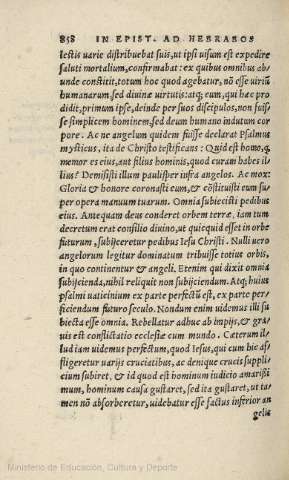 858 IN EPIST. AD HEBRAEOS
lestis uarie distribuebat suis, ut ipsi uisum est expedire
saluti mortalium, confirmabat: ex quibus omnibus abunde
constitit, totum hoc quod agebatur, nō esse uiriū
humanarum, sed diuinæ uirtutis: atq; eum, qui hæc prodidit,
primum ipse, deinde per suos discipulos, non fuisse
simplicem hominem, sed deum humano indutum corpore.
Ac ne angelum quidem fuisse declarat Psalmus
mysticus, ita de Christo testificans: Quid est homo, q̇
memor es eius, aut filius hominis, quod curam habes illius?
Demisisti illum paulisper infra angelos. Ac mox:
Gloria & honore coronasti eum, & cōstituisti eum super
opera manuum tuarum. Omnia subiecisti pedibus
eius. Antequam deus conderet orbem terræ, iam tum
decretum erat consilio diuino, ut quicquid esset in orbe
futurum, subijceretur pedibus Iesu Christi. Nulli uero
angelorum legitur dominatum tribuisse totius orbis,
in quo continentur & angeli. Etenim qui dixit omnia
subijcienda, nihil reliquit non subijciendum. Atq; huius
psalmi uaticinium ex parte perfectū est, ex parte perficiendum
futuro seculo. Nondum enim uidemus illi subiecta
esse omnia. Rebellatur adhuc ab impijs, & grauis
est conflictatio ecclesiæ cum mundo. Cæterum illud
iam uidemus perfectum, quod Iesus, qui cum hic affligeretur
uarijs cruciatibus, ac denique crucis supplicium
subiret, & id quod est hominum iudicio amarissimum,
hominum causa gustaret, sed ita gustaret, ut tamen
nō absorberetur, uidebatur esse factus inferior an
gelis
Ministerio de Educación, Cultura y Deporte